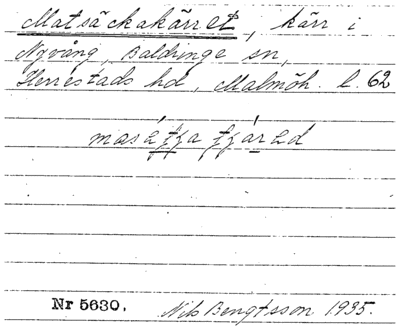 Matsäckakärret, kärr i
Nyvång, Baldringe sn,
Herrestads hd, Malmöh. l. 62
Nr 5630. Nils Bengtsson 1935.